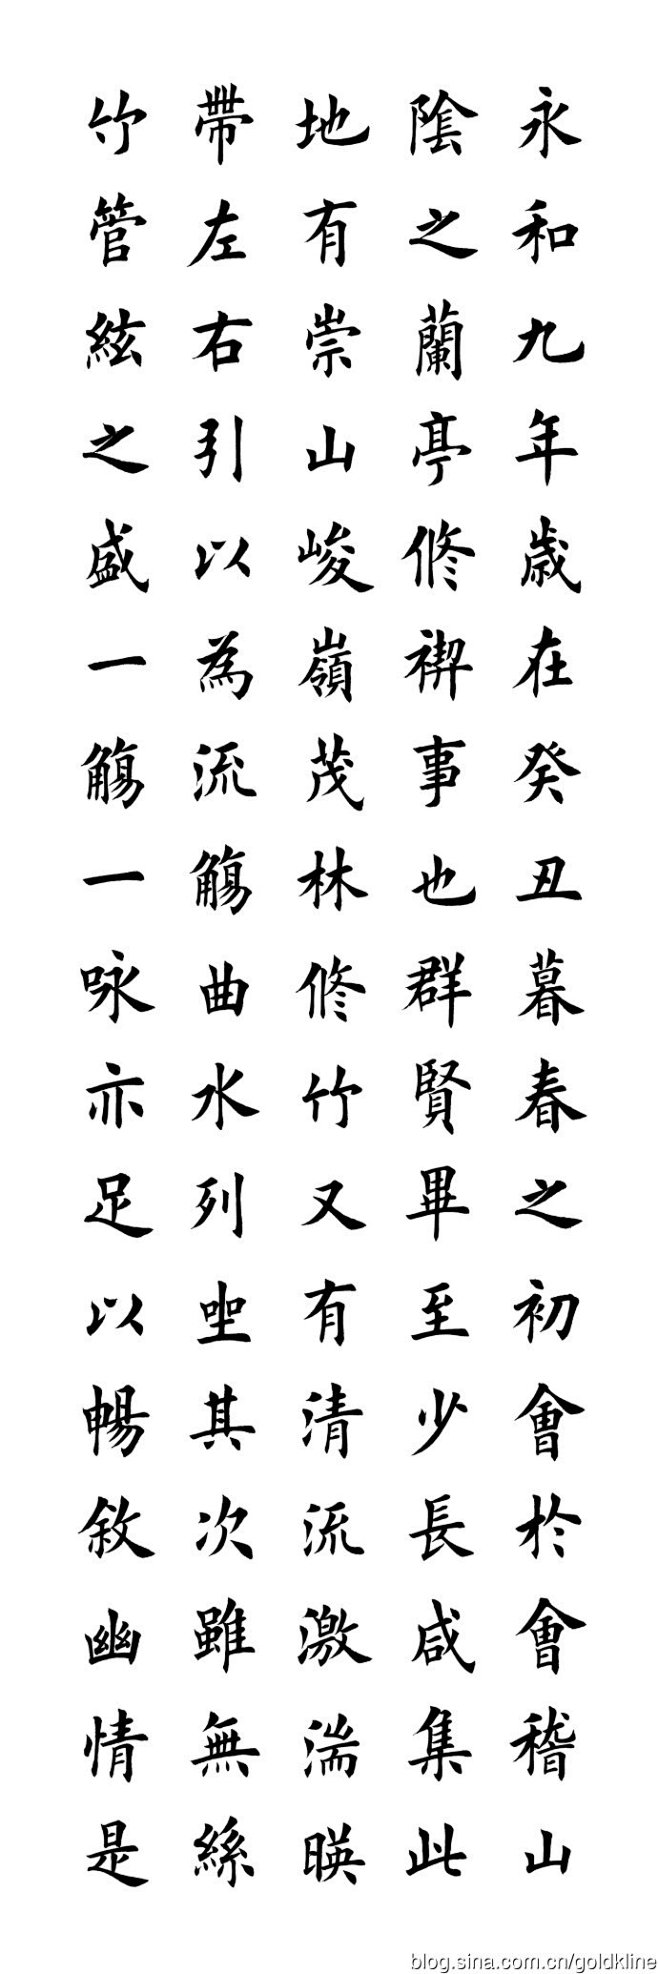 永和九年歲在癸丑暮春之初會於會稽山
陰之蘭亭修禊事也群賢畢至少長咸集此
地有崇山峻嶺茂林修竹又有清流激湍暎
帶左右引以為流觴曲水列坐其次雖無絲
竹管絃之盛一觴一咏亦足以暢敘幽情是
blog.sina.com.cn/goldkline